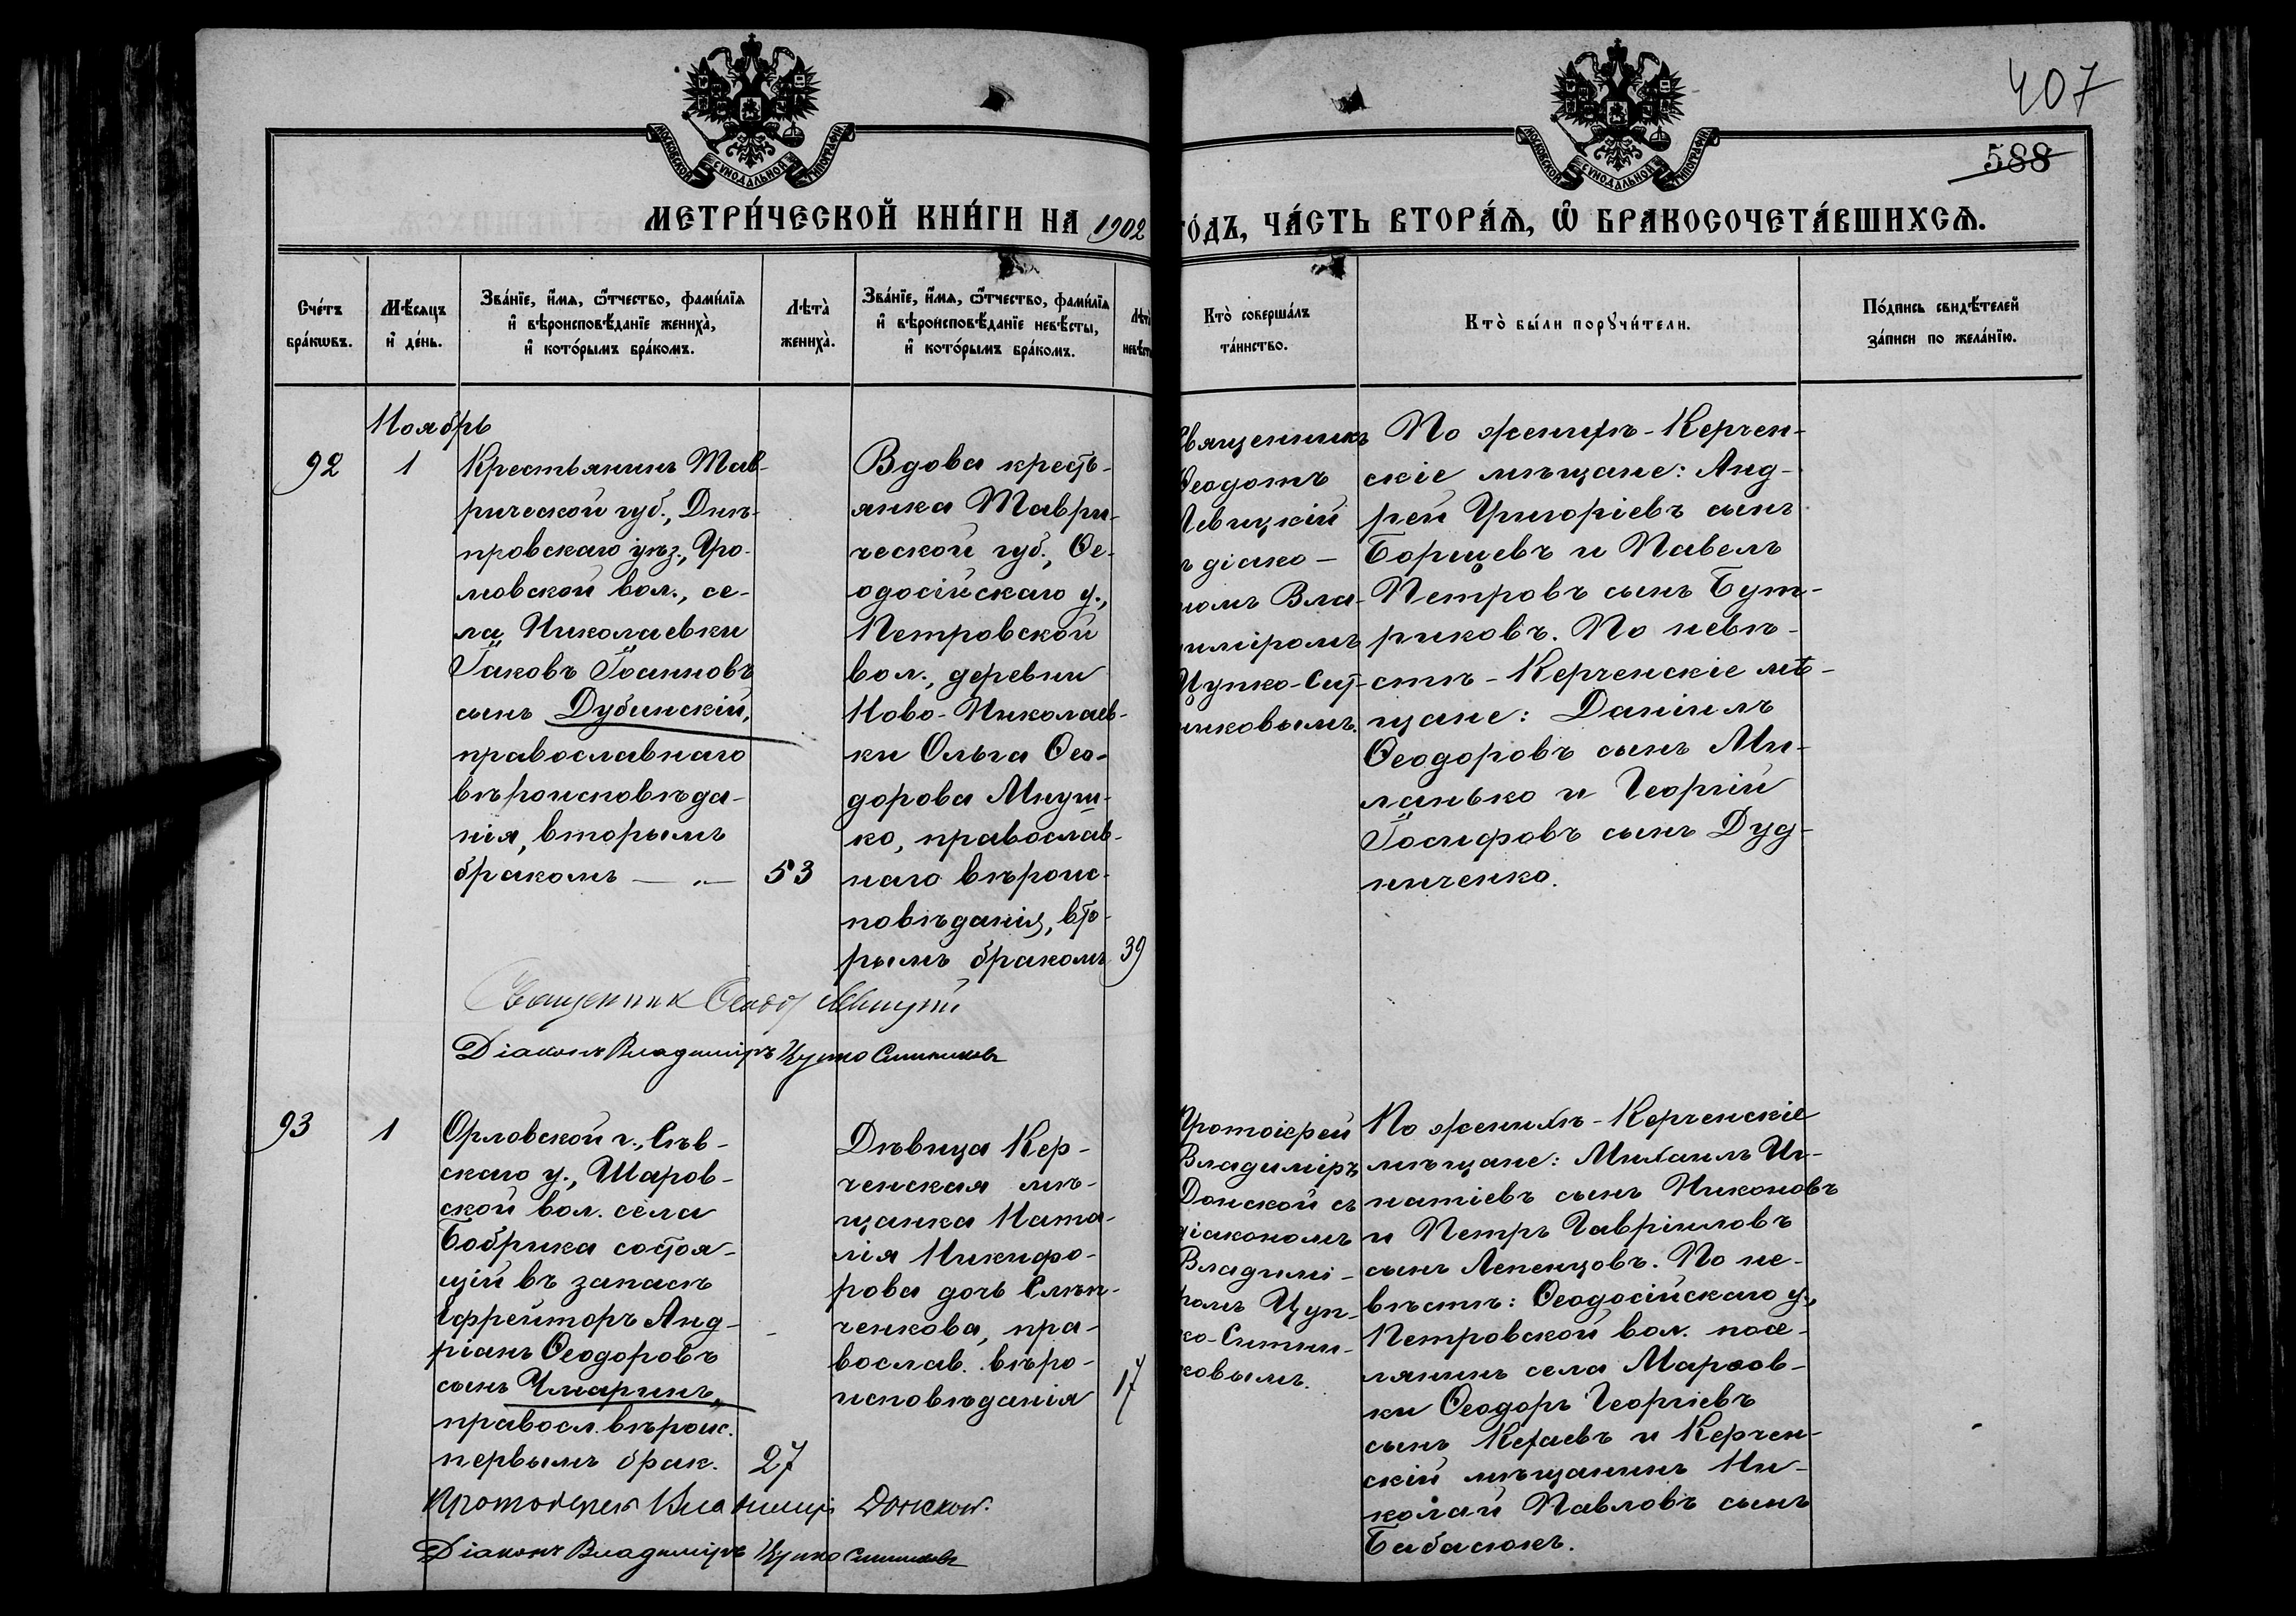 407
588
МОСКОВСКОЙ СѴНОДАЛЬНОЙ ТИПОГРАФІИ
МОСКОВСКОЙ СѴНОДАЛЬНОЙ ТИПОГРАФІИ
МЕТРИ́ЧЕСКОЙ КНИ́ГИ НА 1902 ГО́ДЪ, ЧА́СТЬ ВТОРА́Ѧ, Ѡ҆ БРАКОСОЧЕТА́ВШИХСѦ.
Сче́тъ
бра́кѡвъ.
Мѣ́сяцъ
и҆ де́нь.
Зва́нїе, и҆́мѧ, ѻ҆́тчество, фами́лїѧ
и҆ вѣроисповѣ́данїе жениха̀,
и҆ кото́рымъ бра́комъ.
Лѣта̀
жениха̀.
Зва́нїе, и҆́мѧ, ѻ҆́тчество, фами́лїѧ
и҆ вѣроисповѣ́данїе невѣ́сты,
и҆ кото́рымъ бра́комъ.
Кто̀ соверша́лъ
та́инство.
Кто̀ бы́ли порꙋчи́тели.
По́дпись свидѣ́телей
за́писи по жела́нїю.
Ноябрь
92
1
Крестьянинъ Тав-
рической губ., Днѣ-
провскаго уѣз., Гро-
мовской вол., се-
ла Николаевки
Іаковъ Іоанновъ
сынъ Дубинскій,
православнаго
вѣроисповѣда-
нія, вторымъ
бракомъ — „ —
53
Вдова крестъ-
янка Таври-
ческой губ., Ѳе-
одосійскаго у.,
Петровской
вол., деревни
Ново-Николаев-
ки Ольга Ѳео-
дорова Мнуш-
ко, православ-
наго вѣроис-
повѣданія, вто-
рымъ бракомъ
39
Священникъ
Ѳеодотъ
Левицкій
ъ діако-
номъ Вла-
диміромъ
Цупко-Сит-
никовымъ.
По женихѣ - Керчен-
скіе мѣщане: Анд-
рей Григоріевъ сынъ
Борщевъ и Павелъ
Петровъ сынъ Бут-
риковъ. По невѣ-
стѣ - Керченскіе мѣ-
щане: Даніилъ
Ѳеодоровъ сынъ Ми-
ланько и Георгій
Іосифовъ сынъ Дуд-
ниченко.
Священник Ѳеодот Левицкій
Діаконъ Владиміръ Цупко Ситниковъ
93
1
Орловской г., Сѣв-
скаго у., Шаров-
ской вол. села
Бобрика состоя-
щій въ запасѣ
Ефрейторъ Анд-
ріанъ Ѳеодоровъ
сынъ Чмаринъ,
правосл. вѣроис.
первымъ брак.
27
Дѣвица Кер-
ченская мѣ-
щанка Ната-
лія Никифо-
рова дочь Слѣп-
ченкова, пра-
вослав. вѣро-
исповѣданія
17
Протоіерей
Владиміръ
Донской съ
діакономъ
Владимі-
ромъ Цуп-
ко-Ситни-
ковымъ.
По женихѣ - Керченскіе
мѣщане: Михаилъ Иг-
натіевъ сынъ Никоновъ
и Петръ Гавріиловъ
сынъ Лепенцовъ. По не-
вѣстѣ: Ѳеодосійскаго у.,
Петровской вол. посе-
лянинъ села Марѳов-
ки Ѳеодоръ Георгіевъ
сынъ Кехаевъ и Керчен-
скій мѣщанинъ Ни-
колай Павловъ сынъ
Бабасюкъ.
Протоіерей Владиміръ Донской.
Діаконъ Владиміръ Цупко Ситниковъ